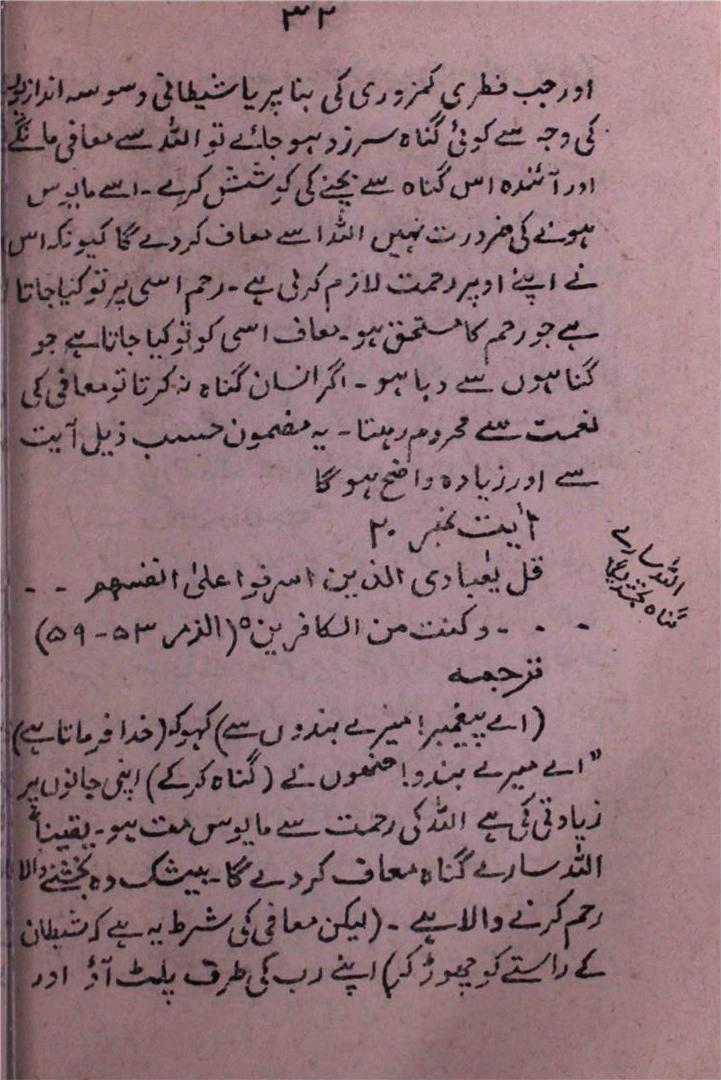 ۳۲
اور جب فطری کمزوری کی بنا پر یا شیطانی وسوسہ اندازیوں
کی وجہ سے کوئی گناہ سرزد ہو جائے تو اللہ سے معافی مانگے
اور آئندہ اس گناہ سے بچنے کی کوشش کرے۔ اسے مایوس
ہونے کی ضرورت نہیں اللہ اسے معاف کر دے گا کیونکہ اس
نے اپنے اوپر رحمت لازم کر لی ہے۔ رحم اسی پر تو کیا جاتا
ہے جو رحم کا مستحق ہو۔ معاف اسی کو تو کیا جاتا ہے جو
گناہوں سے دبا ہو۔ اگر انسان گناہ نہ کرتا تو معافی کی
نعمت سے محروم رہتا۔ یہ مضمون حسب ذیل آیت
سے اور زیادہ واضح ہو گا
آیت نمبر ۲۰
قل یٰعبادی الذین اسرفوا علیٰ انفسھم ۔ ۔
۔ ۔ ۔ وکنت من الکافرین ہ (الذمر ۵۳ - ۵۹)
اللہ سارے
گناہ بخش دیگا
ترجمہ
(اے پیغمبر! میرے بندوں سے) کہو کہ (خدا فرماتا ہے)
"اے میرے بندو! جنھوں نے (گناہ کر کے) اپنی جانوں پر
زیادتی کی ہے اللہ کی رحمت سے مایوس مت ہو۔ یقیناً
اللہ سارے گناہ معاف کر دے گا۔ بیشک وہ بخشنے والا
رحم کرنے والا ہے۔ (لیکن معافی کی شرط یہ ہے کہ شیطان
کے راستے کو چھوڑ کر) اپنے رب کی طرف پلٹ آؤ اور